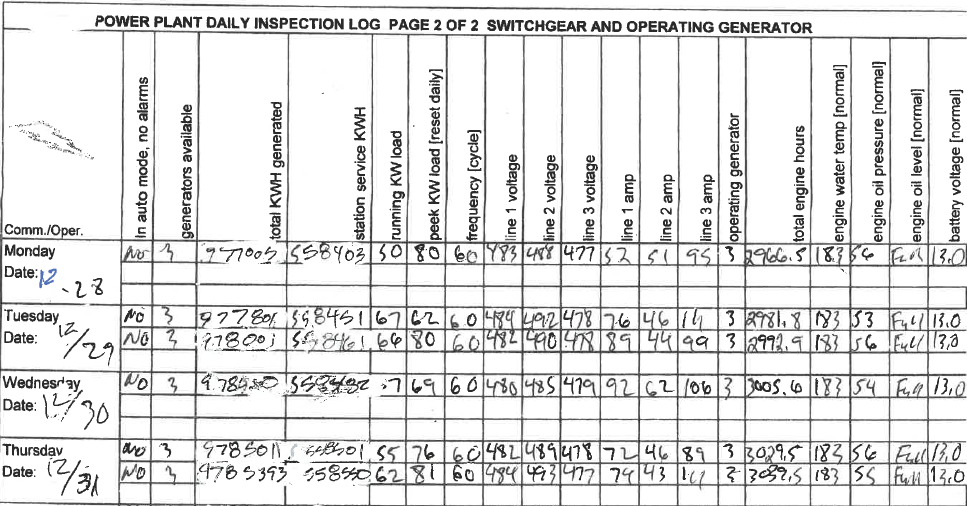 POWER PLANT DAILY INSPECTION LOG PAGE 2 OF 2 SWITCHGEAR AND OPERATING GENERATOR
Comm./Oper. in auto mode, no alarms generators available total KWH generated station service KWH running KW load peek KW load [reset daily] frequency [cycle] line 1 voltage line 2 voltage line 3 voltage line 1 amp line 2 amp line 3 amp operating generator total engine hours engine water temp [normal] engine oil pressure [normal] engine oil level [normal] battery voltage [normal]
Monday NO 3 977005 558403 50 80 60 483 488 477 52 51 95 3 2966.5 183 56 Full 13.0
Date: 12-28
Tuesday NO 3 977801 558451 67 62 60 484 492 478 76 46 3 2981.8 183 53 Full 13.0
Date: 12/29 NO 3 978001 558461 66 80 60 482 490 478 89 44 99 3 2992.9 183 56 Full 13.0
Wednesday NO 3 69 60 480 485 479 92 62 106 3 3005.6 183 54 Full 13.0
Date: 12/30
Thursday NO 3 9785011 558501 55 76 60 482 489 478 72 46 89 3 3029.5 183 56 Full 13.0
Date: 12/31 NO 3 9785393 558550 62 81 60 484 493 477 74 43 3039.5 183 55 Full 13.0